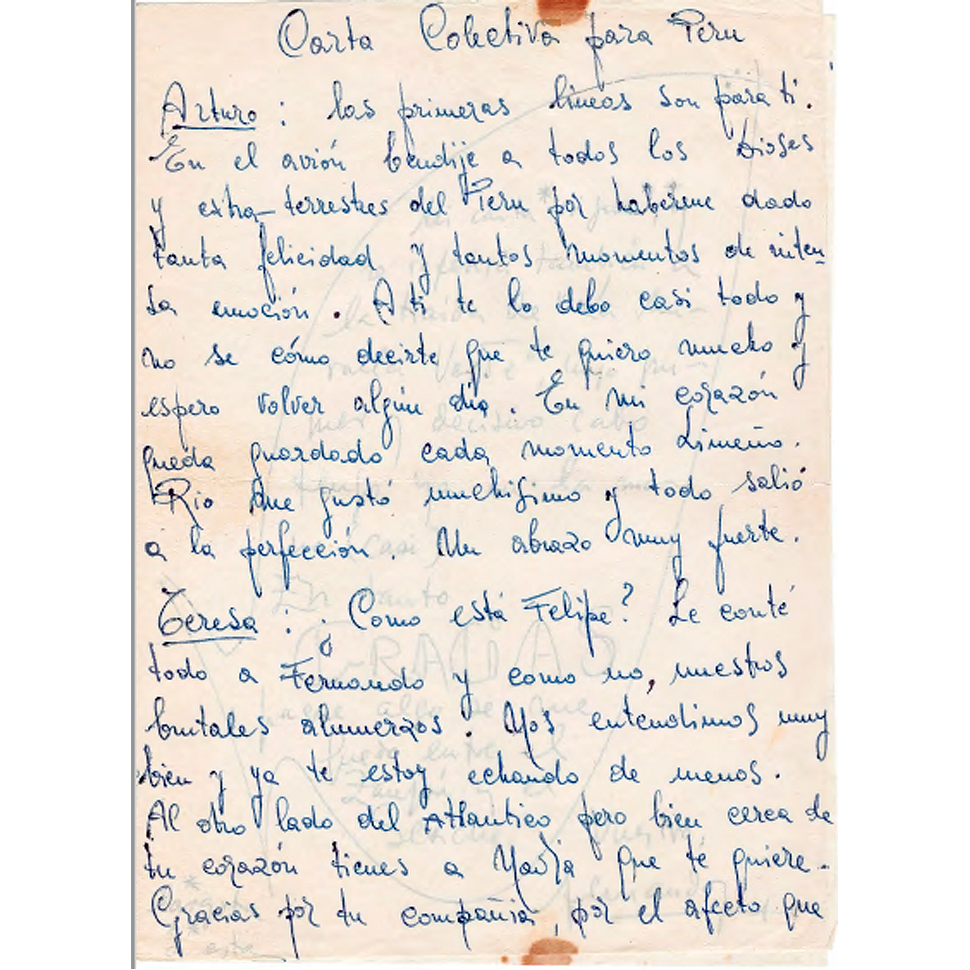 Carta Colectiva para Peru
Arturo : las primeras lineas son para ti.
En el avión bendije a todos los Dioses
y extra-terrestres del Peru por haberme dado
tanta felicidad y tantos momentos de inten
sa emoción. A ti te lo debo casi todo y
no se cómo decirte que te quiero mucho y
espero volver algún día. En mi corazón
queda guardado cada momento Limeño.
Rio me gustó muchisimo y todo salió
a la perfección. Un abrazo muy fuerte.
Teresa : ¿Como está Felipe? Le conté
todo a Fernando y como no, nuestros
brutales almuerzos! Nos entendimos muy
bien y ya te estoy echando de menos.
Al otro lado del Atlantico pero bien cerca de
tu corazón tienes a que te quiere.
Gracias por tu compañia, por el afecto que
GRACIAS